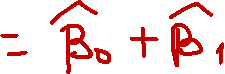 = β̂₀ + β̂₁